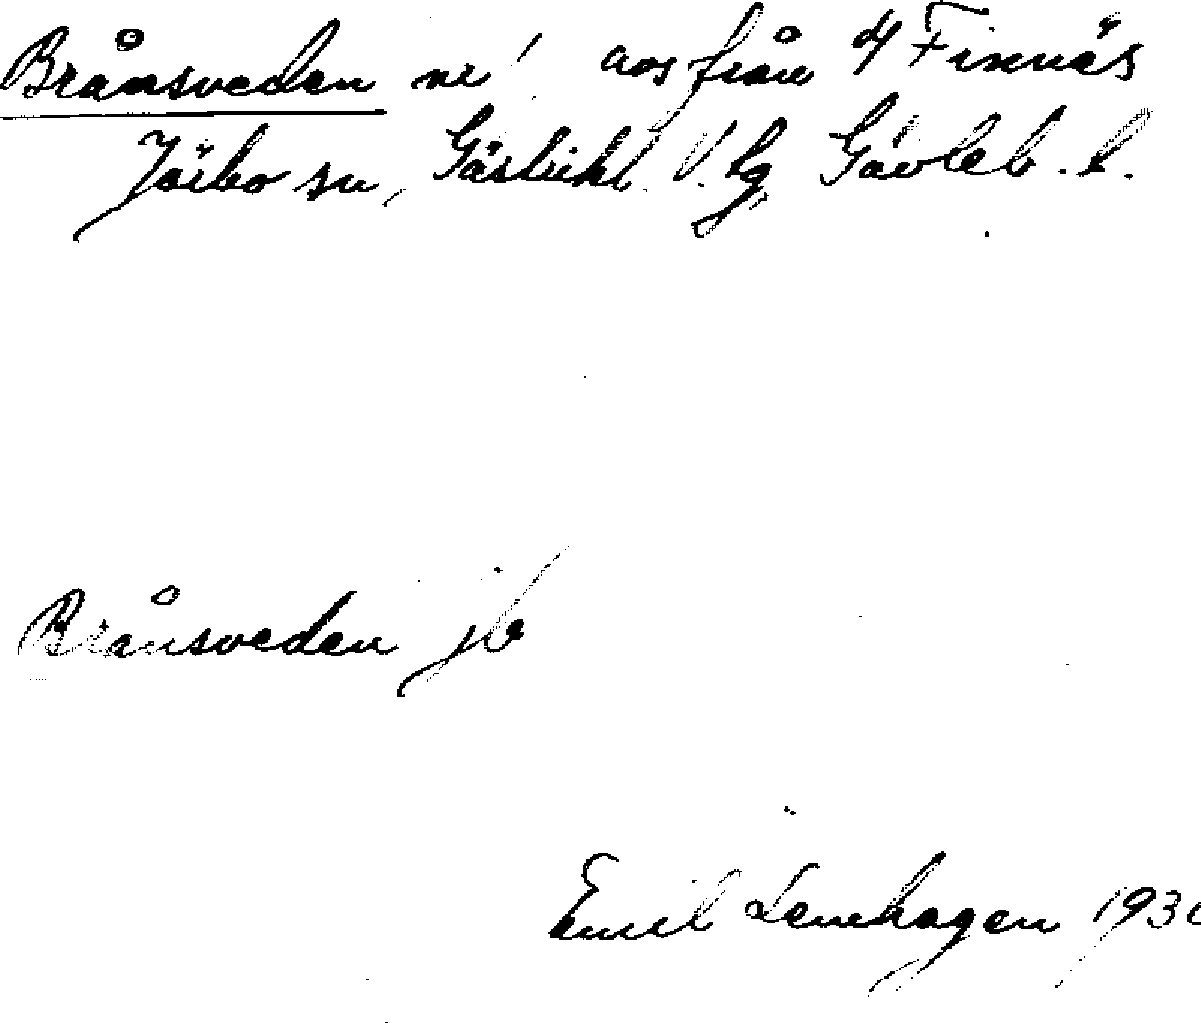 Brånsveden nr 1 avs från 4 Finnäs
Järbo sn, Gästrikl. V. tg, Gävleb. l.
Brånsveden jb
Emil Lenhagen 193